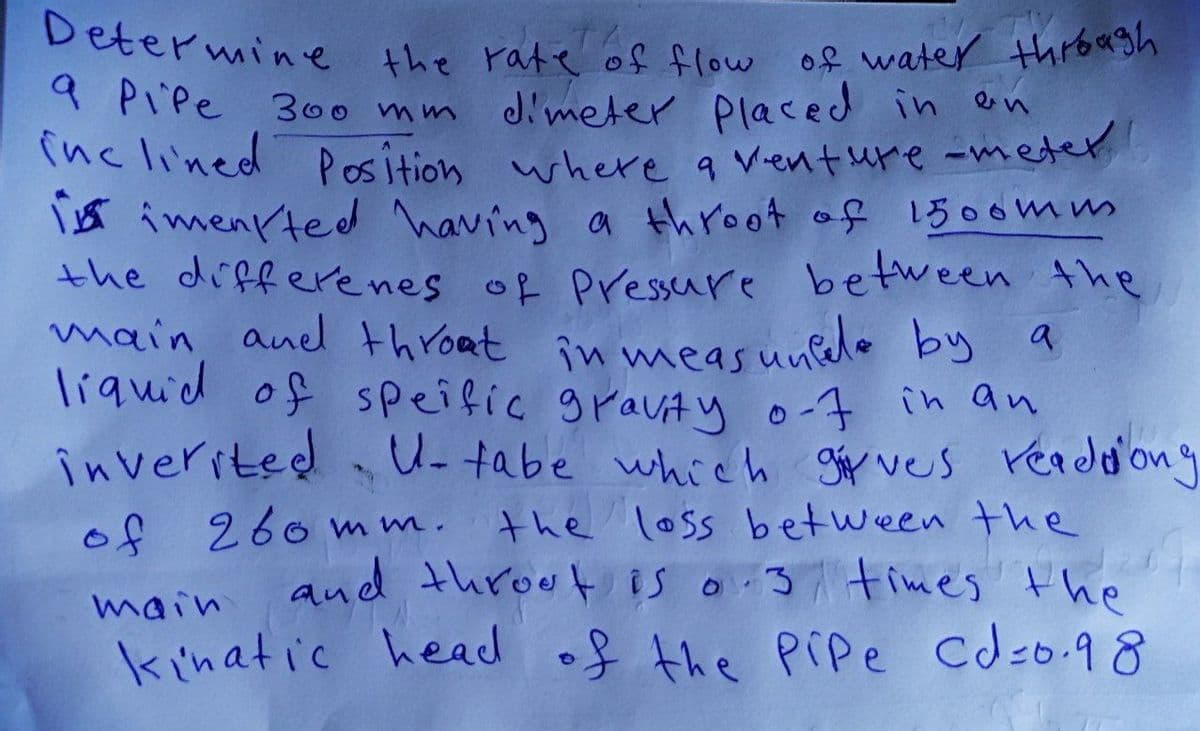 Determine the rate of flow of water through
a Pipe 300 mm dimeter placed in an
inclined Position where a venture-meter
is imenrted having a throot of 1500mm
the differenes of Pressure between the
main and throat in measunede by a
liquid of speific gravity 0-7 in an
inverited U-tabe which gives readdong
of 260 mm. the loss between the
main and throot is 0.3 times the
kinatic head of the PiPe cd=0.98